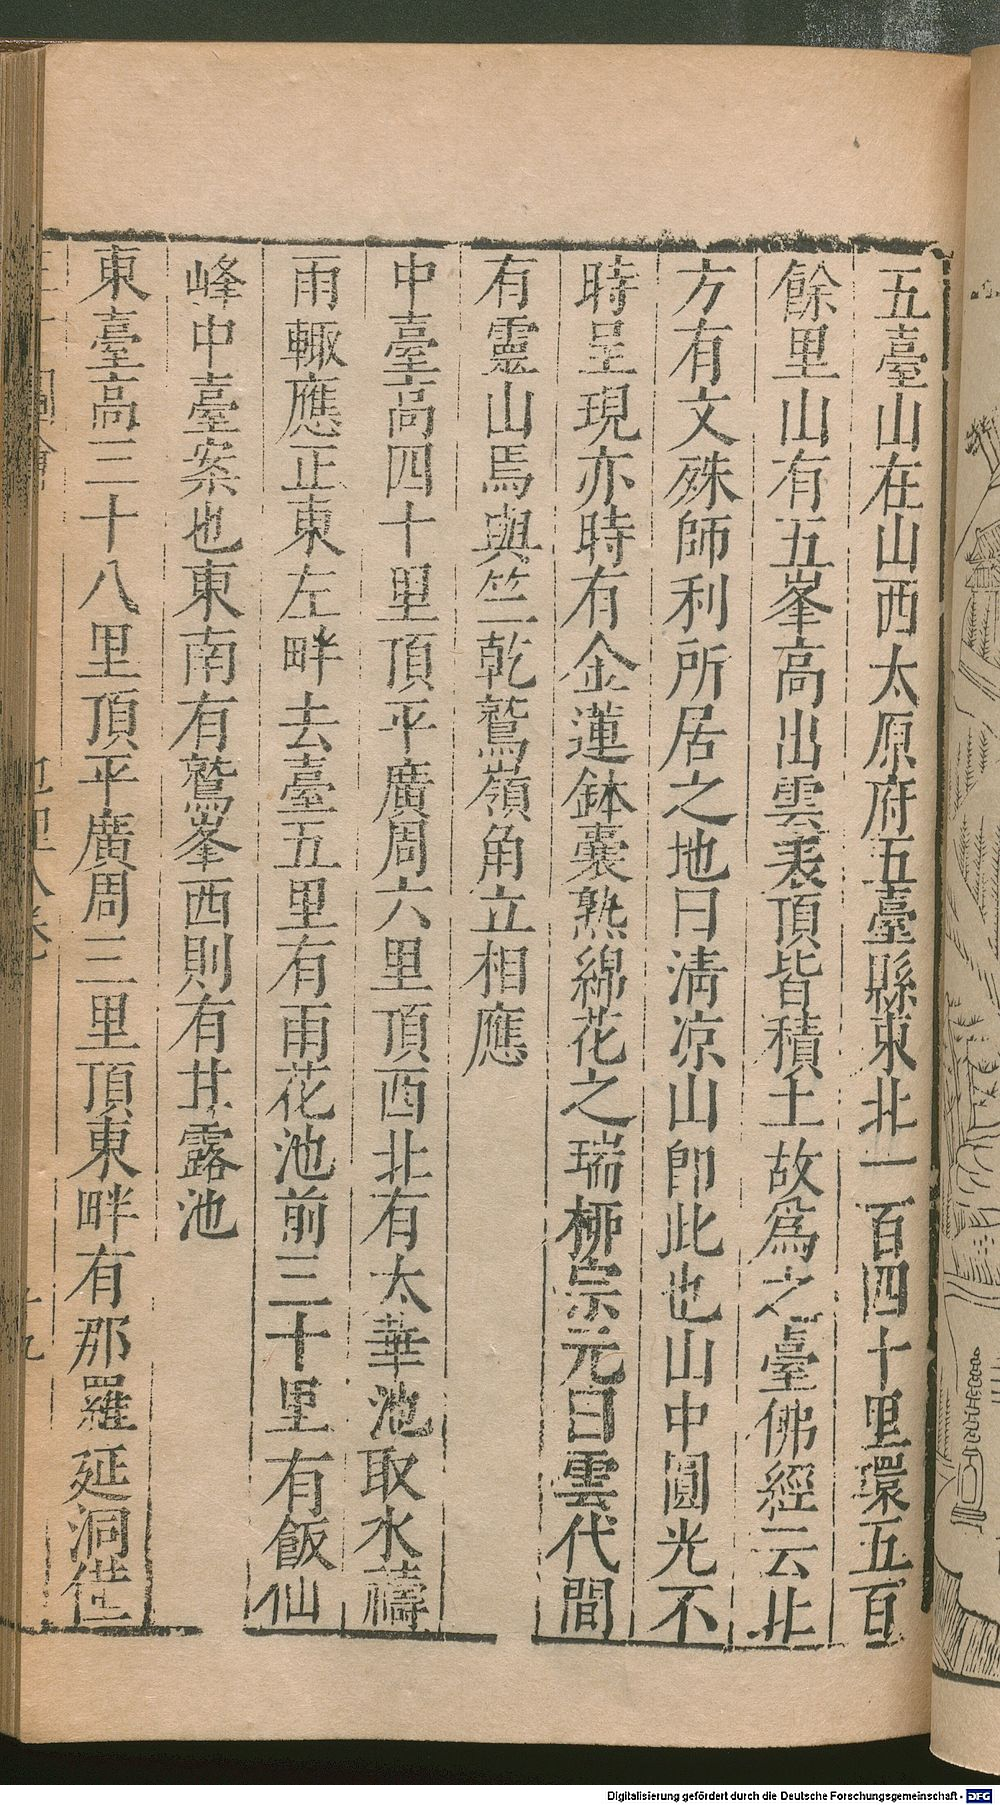 五臺山在山西太原府五臺縣東北一百四十里環五百
餘里山有五峯高出雲表頂皆積土故爲之臺佛經云北
方有文殊師利所居之地曰清凉山卽此也山中圓光不
時呈現亦時有金蓮鉢囊熟綿花之瑞栁宗元曰雲代間
有靈山焉與竺乾鷲嶺角立相應
中臺高四十里頂平廣周六里頂西北有太華池取水禱
雨輙應正東左畔去臺五里有雨花池前三十里有飯仙
峰中臺案也東南有鷲峯西則有甘露池
東臺高三十八里頂平廣周三里頂東畔有那羅延洞
三才圖會 地理八卷 十九
Digitalisierung gefördert durch die Deutsche Forschungsgemeinschaft - DFG